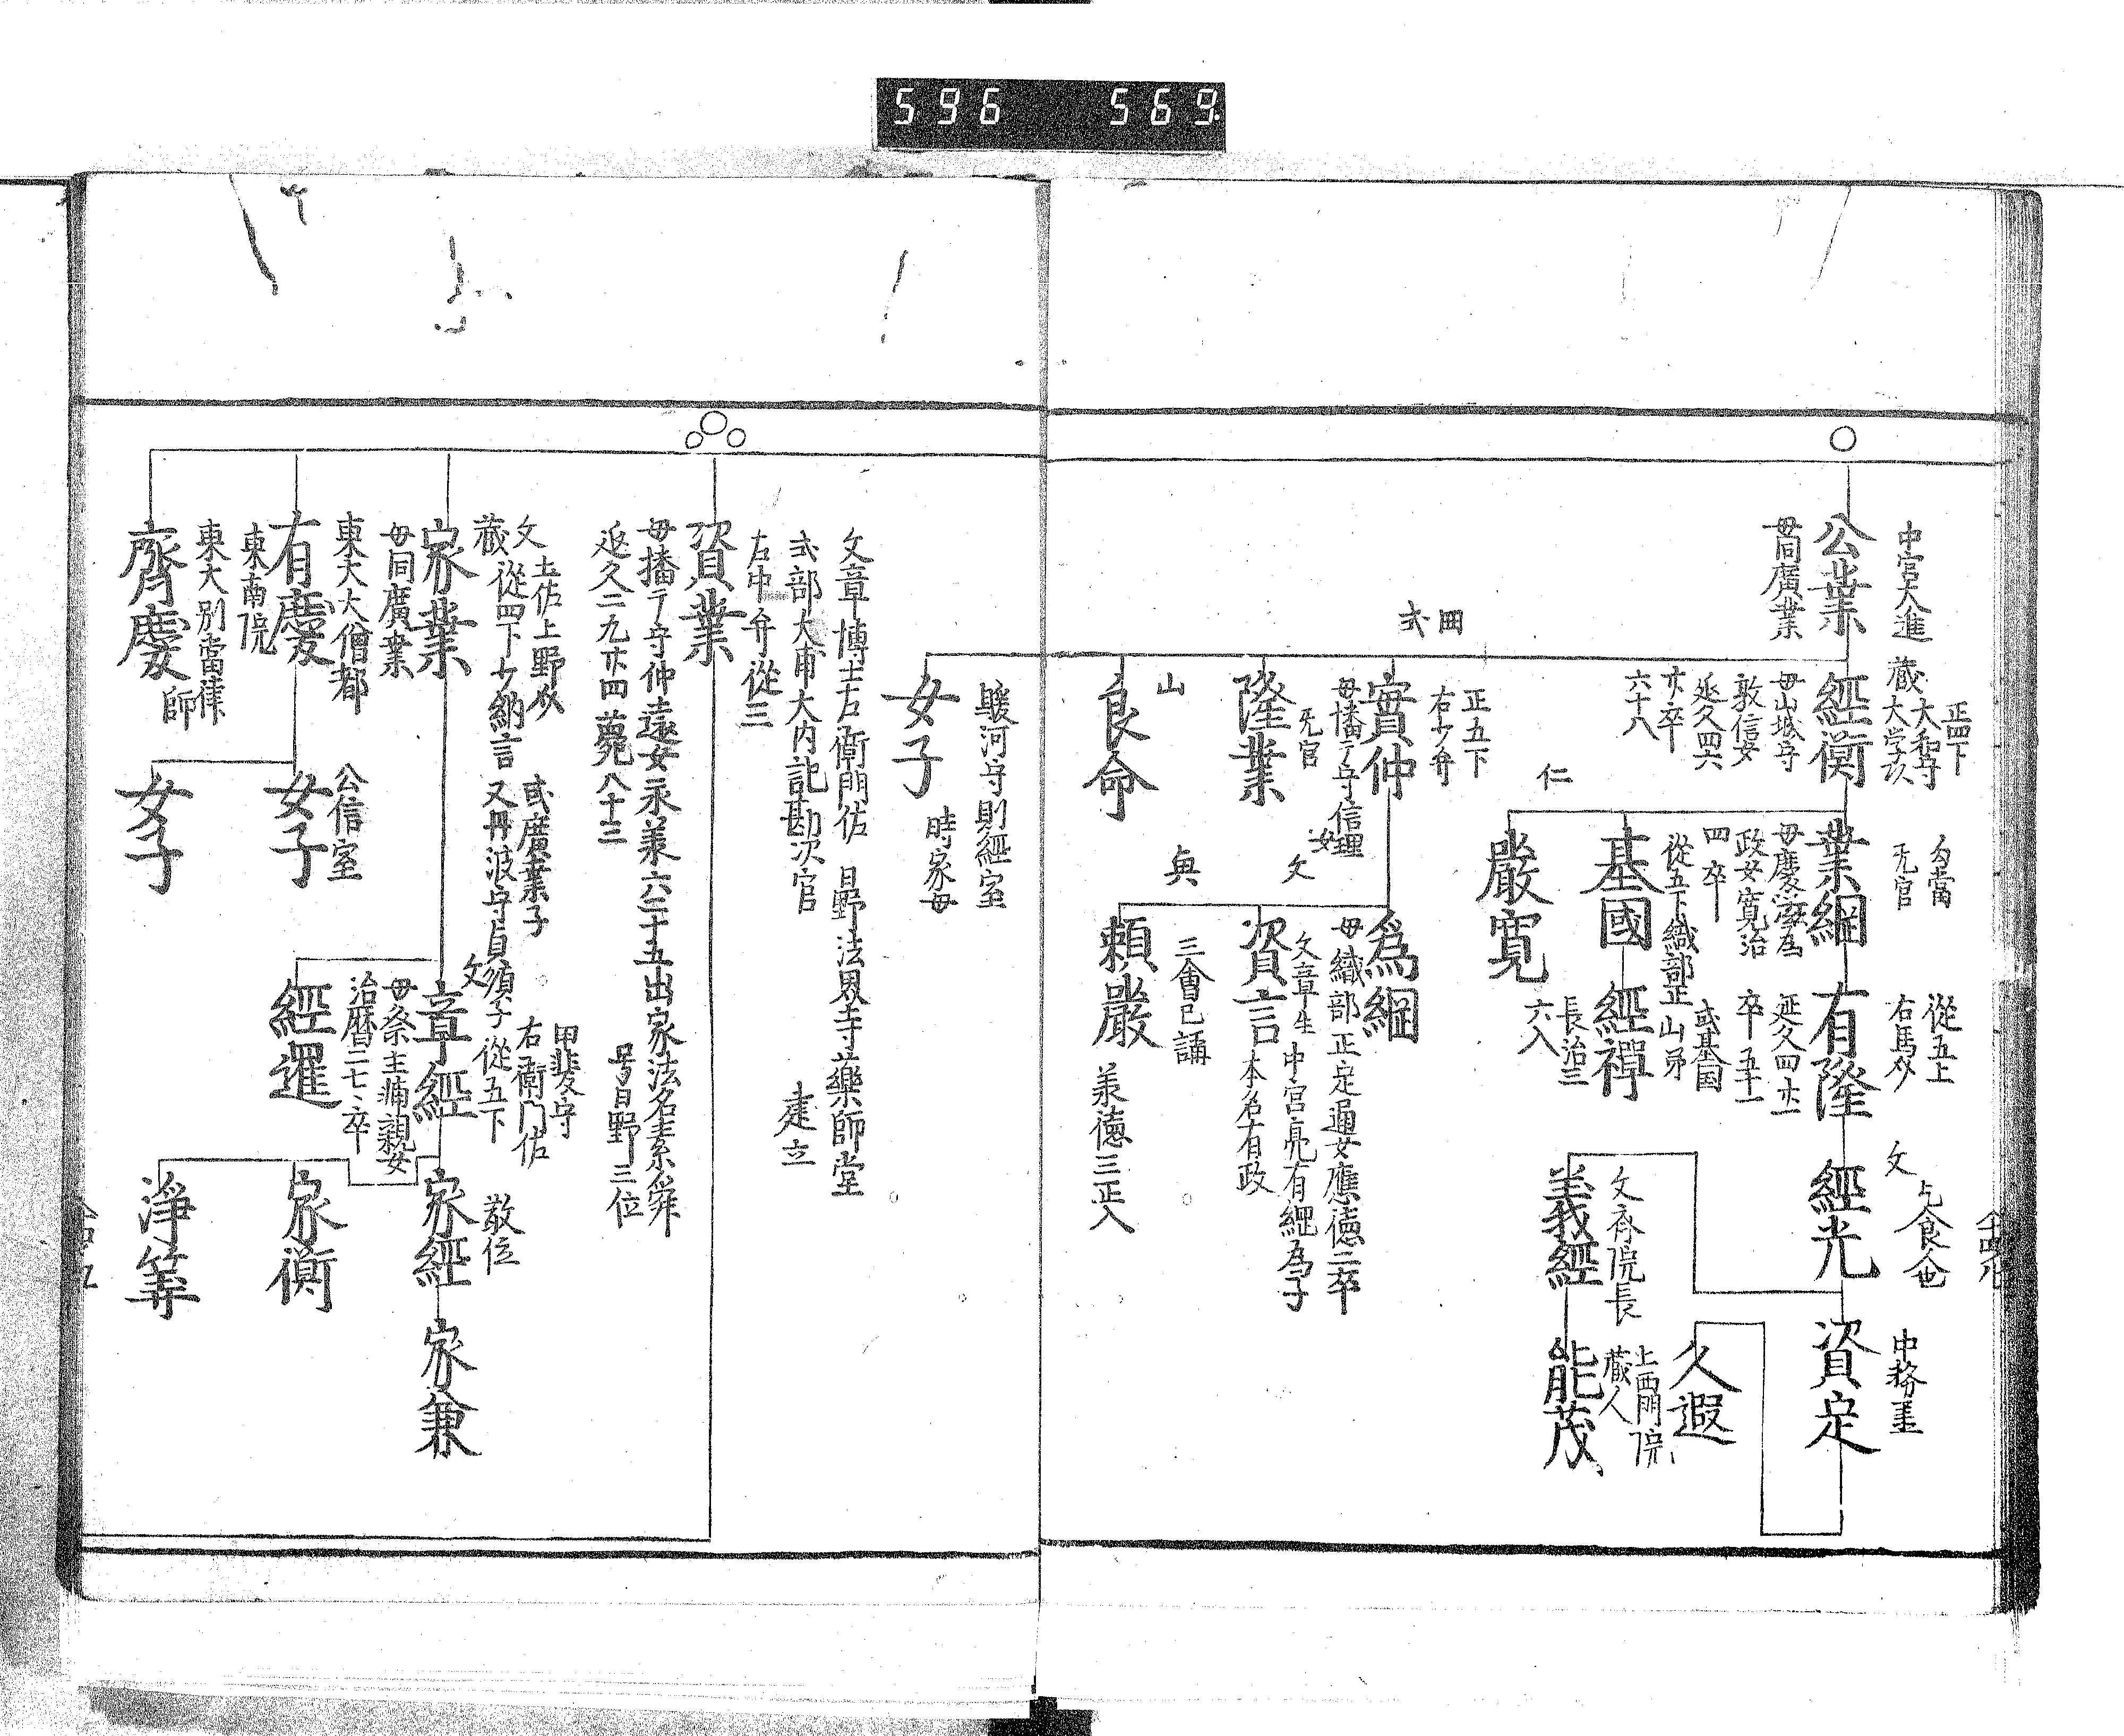 596 569
中宮大進
公業
母同廣業
正四下
大和守
藏大学頭
經衡
母山城守
敦信女
延久四六
卒
六十八
勾當
无官
業綱
政女寛治
四 卒
從五上
右馬
有隆
延久四
卒 五十一
文
乞食
經光
中務丞
資定
久遐
從五下織部正
基國
或基国
山
經禪
長治三
六入
仁
嚴寛
文斎院長
義經
上西門院
藏人
能茂
正五下
右少弁
實仲
母播广守信理
女
為綱
母織部正定通女應徳二卒
无官
隆業
文
文章生 中宮亮有綱為子
資言
本名有政
山
良命
與
三會已講
頼嚴
義徳三正入
駿河守則經室
女子
時家母
文章博士右衛門佐 日野法界寺藥師堂
建立
式部大甫大内記勘次官
右中弁 從三
資業
母播广守仲遠女永義六二十五出家法名素舜
延久二九 四薨八十三
号日野三位
文
土佐上野
藏從四下少納言
家業
母同廣業
或廣業子
又丹波守貞須子
甲斐守
右衛門佐
文
從五下
章經
母祭主輔親女
治暦二七、卒
經暹
散位
家經
家兼
家衡
淨等
東大大僧都
有慶
東南院
公信室
女子
東大別當律
師
齊慶
女子